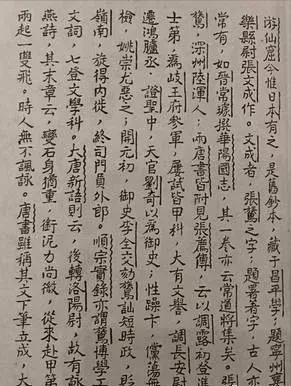 游仙窟今惟日本有之，是舊鈔本，藏于昌平學；題寧州襄
樂縣尉張文成作。文成者，張鷟之字；題署著字，古人亦
常有，如晉常璩撰華陽國志，其一卷亦云常道將集矣。張
鷟，深州陸渾人；兩唐書皆附見張薦傳，云以調露初登進
士第，爲岐王府參軍，屢試皆甲科，大有文譽，調長安尉
遷鴻臚丞。證聖中，天官劉奇以爲御史；性躁卞，儻蕩無
檢，姚崇尤惡之；開元初，御史李全交劾鷟訕短時政，貶
嶺南，旋得内徙，終司門員外郎。順宗實錄亦謂鷟博學工
文詞，七登文學科。大唐新語則云，後轉洛陽尉，故有詠
燕詩，其末章云，變石身猶重，銜泥力尚微，從來赴甲第，
兩起一雙飛。時人無不諷詠。唐書雖稱其文下筆立成，大